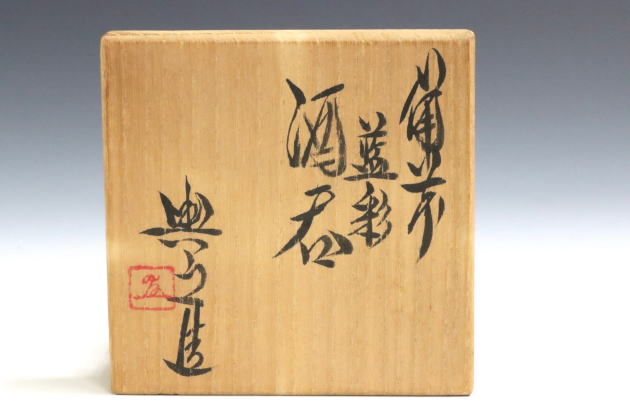 備前
藍彩
酒呑
興三造